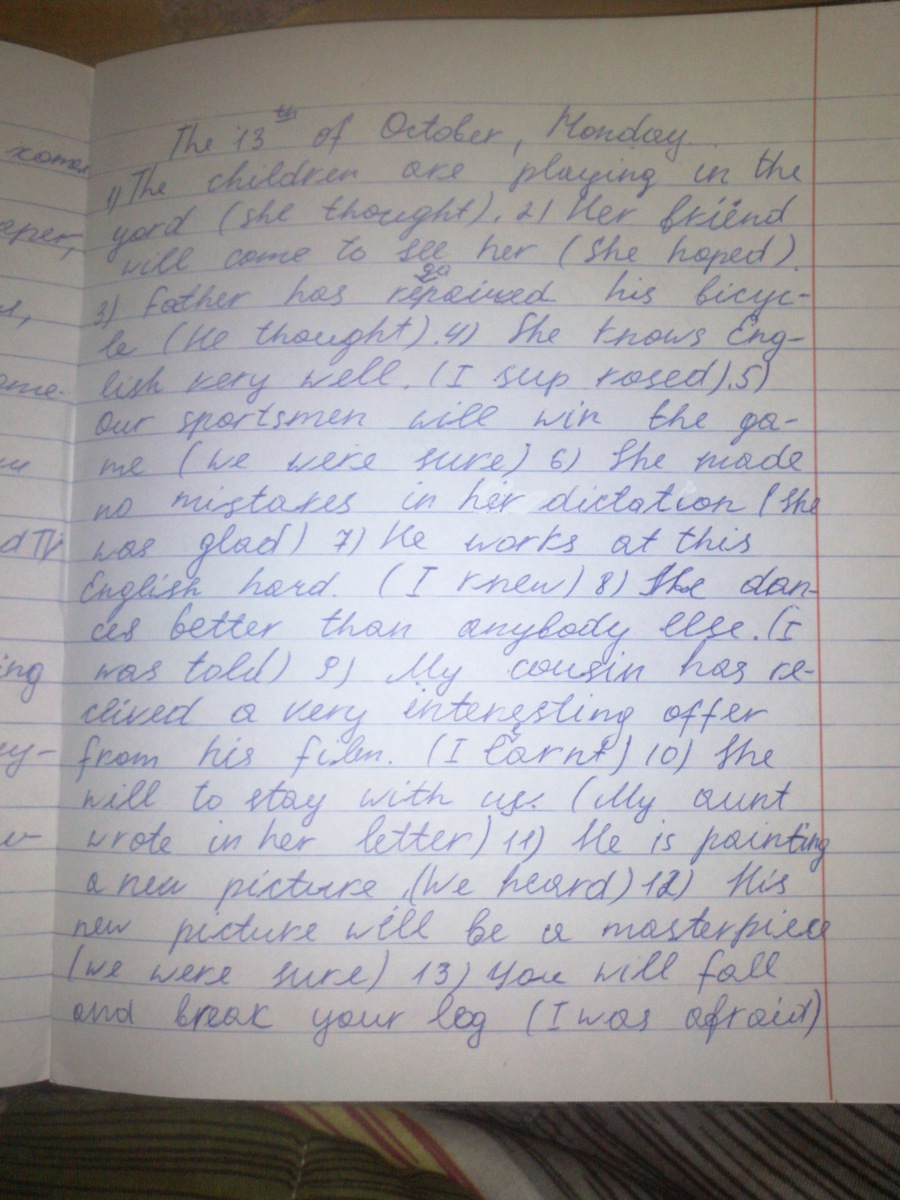 The 13th of October, Monday.
1) The children are playing in the
yard (she thought). 2) Her friend
will come to see her (She hoped).
3) Father has repaired his bicyc-
le (He thought). 4) She knows Eng-
lish very well. (I sup posed). 5)
Our sportsmen will win the ga-
me (we were sure) 6) She made
no mistakes in her dictation (She
was glad) 7) He works at this
English hard. (I knew) 8) She dan-
ces better than anybody else. (I
was told) 9) My cousin has re-
ceived a very interesting offer
from his film. (I learnt) 10) She
will to stay with us. (My aunt
wrote in her letter) 11) He is painting
a new picture (We heard) 12) His
new picture will be a masterpiece
(we were sure) 13) You will fall
and break your leg (I was afraid)
хотел
ing